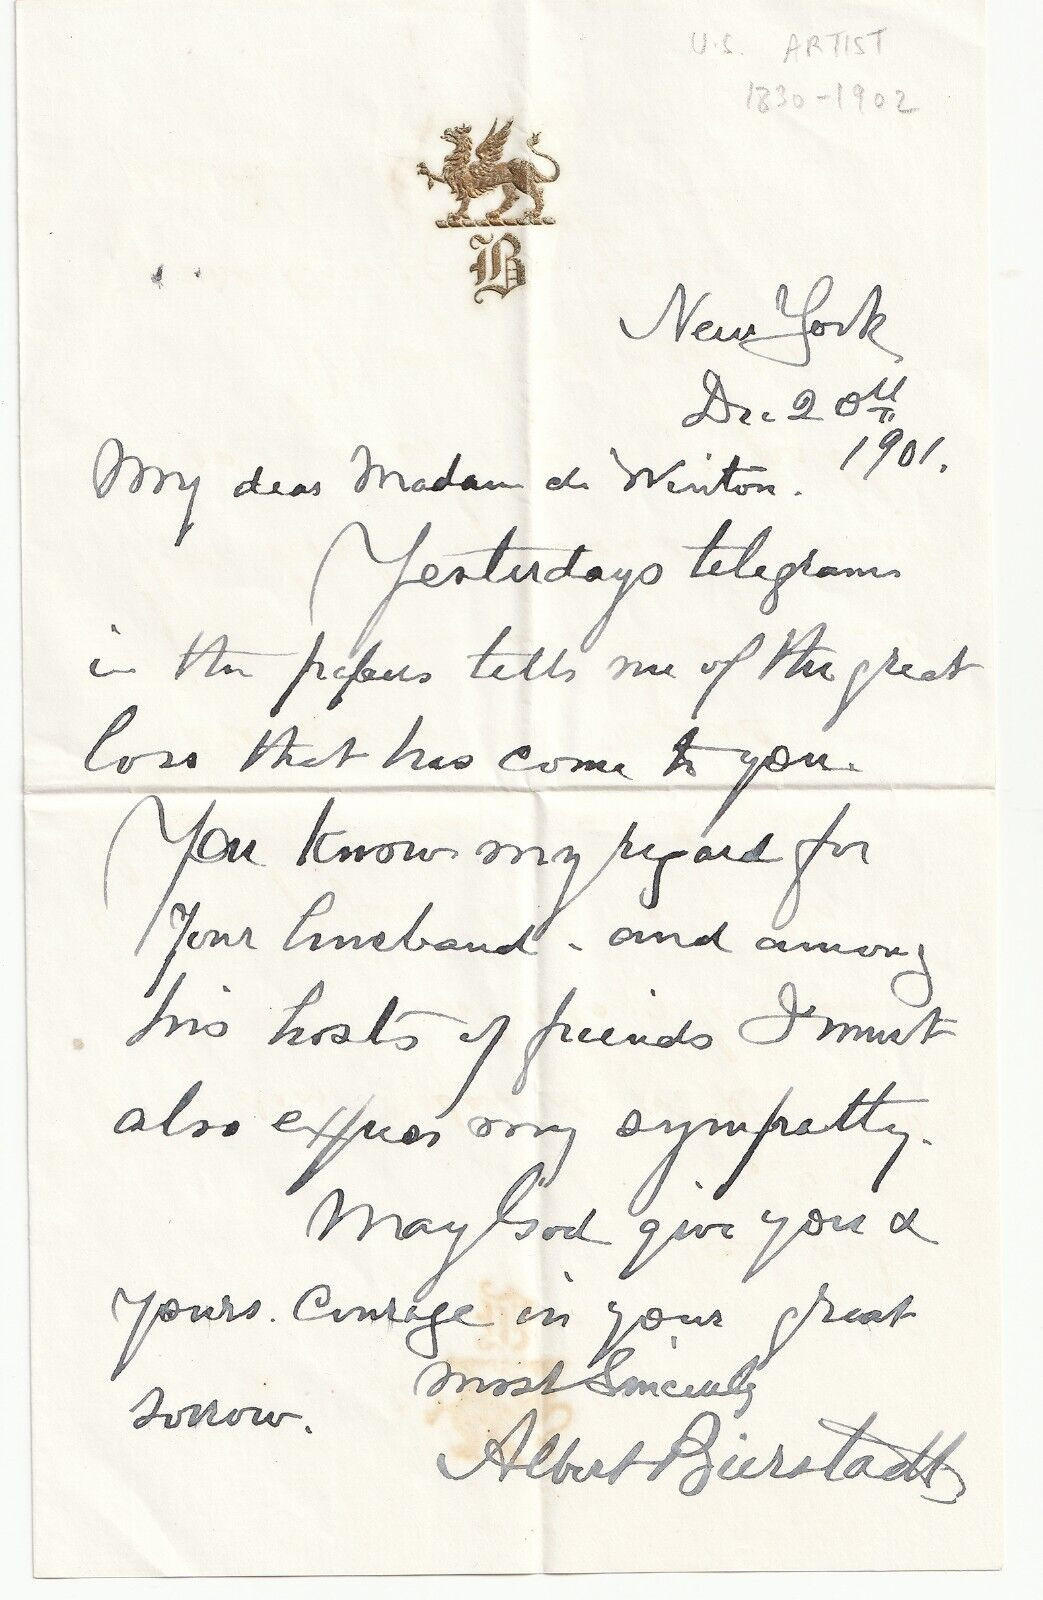 U.S. ARTIST
1830-1902
B
New York
Dec 20th
1901.
My dear Madam de Winton.
Yesterdays telegrams
in the papers tells me of the great
loss that has come to you.
You know my regard for
your husband - and among
his hosts of friends I must
also express my sympathy.
May God give you &
yours. courage in your great
sorrow.
most Sincerely
Albert Bierstadt